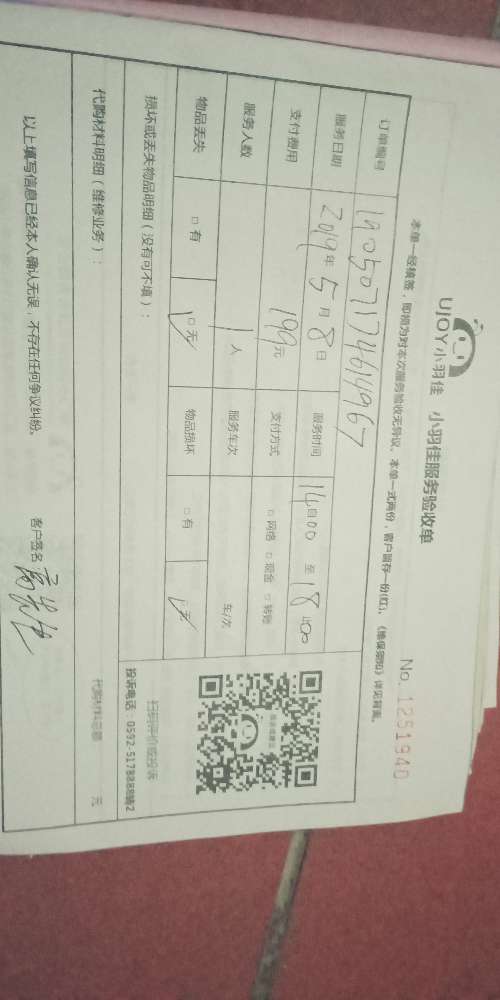 UJOY小羽佳 小羽佳服务验收单
No. 1251940
本单一经核签，即视为对本次服务验收无异议。本单一式两份，客户留存一份(红)。《维保须知》详见背面。
订单编号
服务日期 2019年5月8日 服务时间 14:00 至 18:00
支付费用 199元 支付方式 □网络 □现金 □转账
服务人数 1人 服务车次 车/次
物品丢失 □有 □无 物品损坏 □有 □无
扫码评价或投诉
投诉电话：0592-5178888转2
损坏或丢失物品明细（没有可不填）：
代购材料明细（维修业务）：
代购材料总额 元
以上填写信息已经本人确认无误，不存在任何争议纠纷。
客户签名